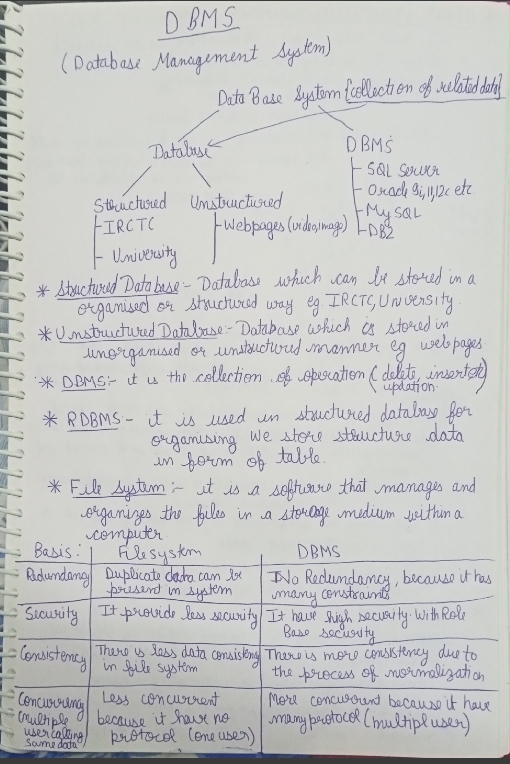 DBMS
(Database Management System)
Data Base System [collection of related data]
Database
DBMS
SQL Server
Oracle 9i,11,12c etc
MySQL
DB2
Structured
IRCTC
University
Unstructured
Webpages (video,image)
* Structured Database:- Database which can be stored in a
organised or structured way eg IRCTC, University.
* Unstructured Database:- Database which is stored in
unorganised or unstructured manner eg web pages
* DBMS:- it is the collection of operation (delete, insertion,
updation.
* RDBMS- it is used in structured database for
organising We store structure data
in form of table.
* File System:- it is a software that manages and
organizes the files in a storage medium within a
computer
Basis: Filesystem DBMS
Redundancy Duplicate data can be
present in system
No Redundancy, because it has
many constraints
Security It provide less security
It have high security. With Role
Base security
Consistency There is less data consistency
in file system
There is more consistency due to
the process of normalization
Concurrency
(multiple
user calling
same data)
Less concurrent
because it have no
protocol (one user)
More concurrent because it have
many protocol (multipl user)